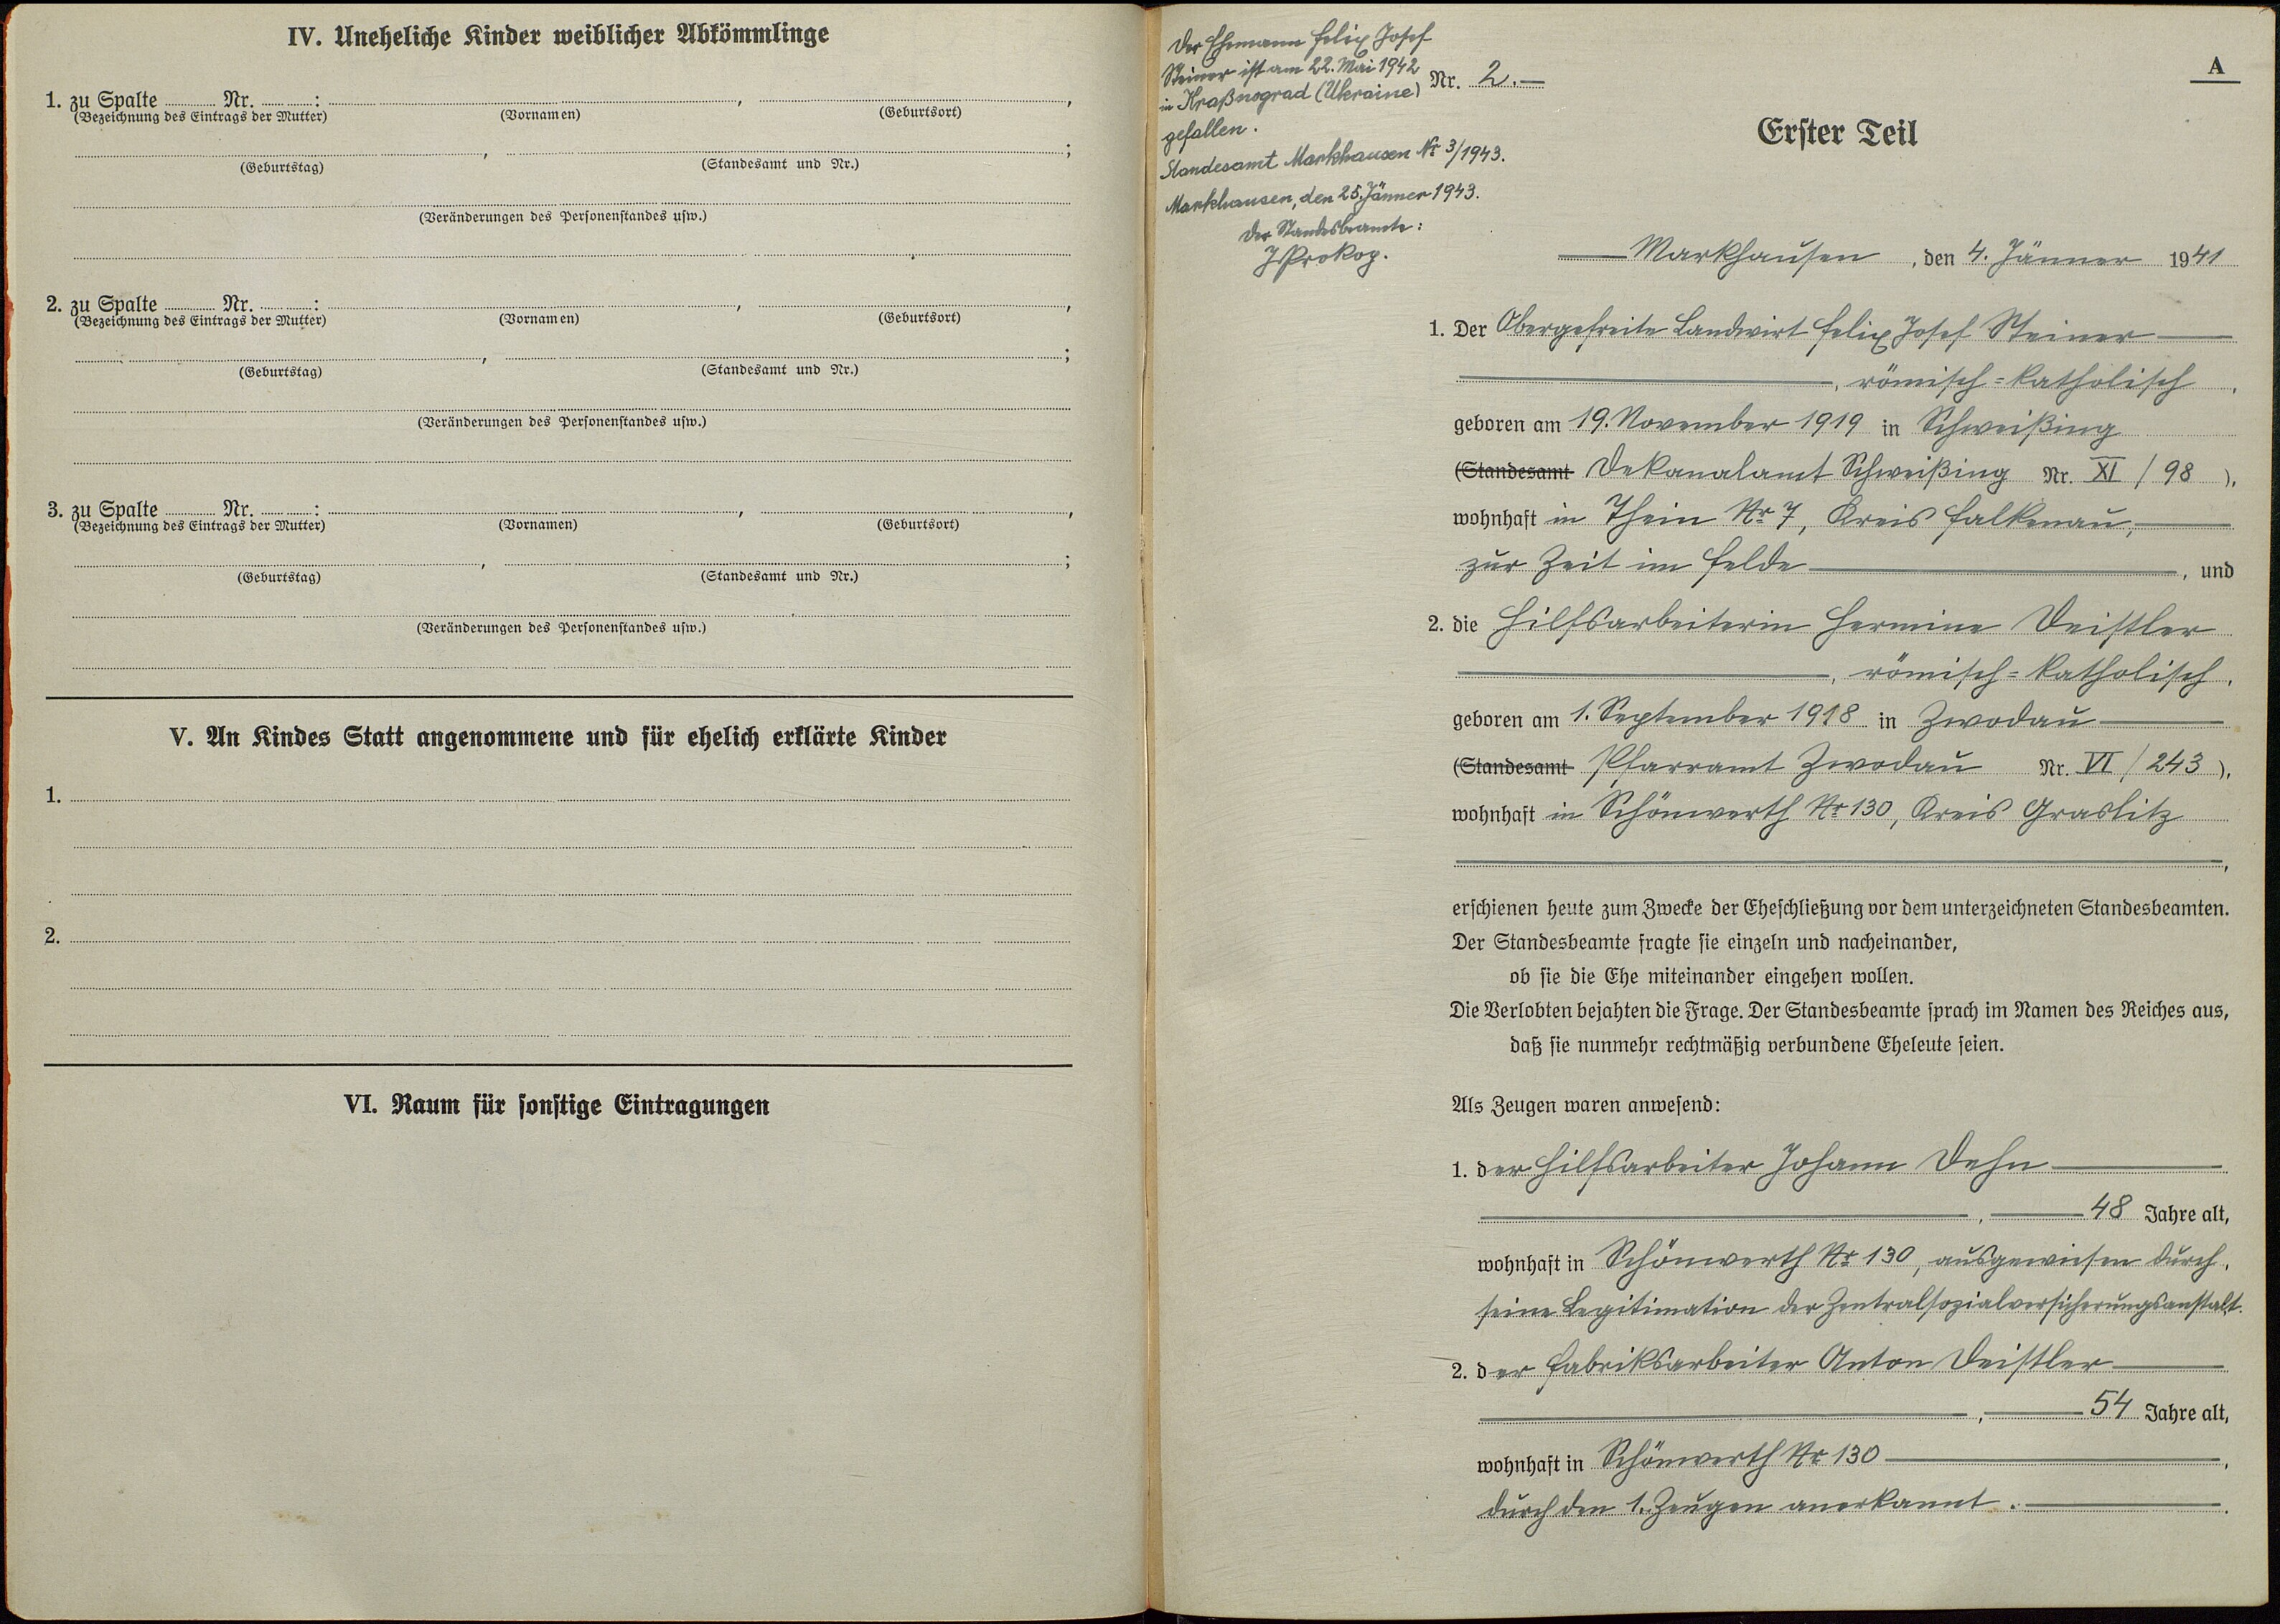 IV. Uneheliche Kinder weiblicher Abkömmlinge
1. zu Spalte ........ Nr. ........: ........, ........,
(Bezeichnung des Eintrags der Mutter) (Vornamen) (Geburtsort)
........, ........;
(Geburtstag) (Standesamt und Nr.)
(Veränderungen des Personenstandes usw.)
2. zu Spalte ........ Nr. ........: ........, ........,
(Bezeichnung des Eintrags der Mutter) (Vornamen) (Geburtsort)
........, ........;
(Geburtstag) (Standesamt und Nr.)
(Veränderungen des Personenstandes usw.)
3. zu Spalte ........ Nr. ........: ........, ........,
(Bezeichnung des Eintrags der Mutter) (Vornamen) (Geburtsort)
........, ........;
(Geburtstag) (Standesamt und Nr.)
(Veränderungen des Personenstandes usw.)
V. An Kindes Statt angenommene und für ehelich erklärte Kinder
1.
2.
VI. Raum für sonstige Eintragungen
Der Ehemann Felix Josef
Steiner ist am 22. Mai 1942
in Kraßnograd (Ukraine)
gefallen.
Standesamt Markhausen Nr 3/1943.
Markhausen, den 25. Jänner 1943.
Der Standesbeamte:
JProkop.
A
Nr. 2.—
Erster Teil
Markhausen, den 4. Jänner 1941
1. Der Obergefreite Landwirt Felix Josef Steiner
, römisch=katholisch,
geboren am 19. November 1919 in Schweißing
(Standesamt Dekanalamt Schweißing Nr. XI / 98 ),
wohnhaft in Thein Nr 7, Kreis Falkenau,
zur Zeit im Felde, und
2. die Hilfsarbeiterin Hermine Deistler
, römisch=katholisch,
geboren am 1. September 1918 in Zwodau
(Standesamt Pfarramt Zwodau Nr. VI / 243 ),
wohnhaft in Schönwerth Nr 130, Kreis Graslitz
,
erschienen heute zum Zwecke der Eheschließung vor dem unterzeichneten Standesbeamten.
Der Standesbeamte fragte sie einzeln und nacheinander,
ob sie die Ehe miteinander eingehen wollen.
Die Verlobten bejahten die Frage. Der Standesbeamte sprach im Namen des Reiches aus,
daß sie nunmehr rechtmäßig verbundene Eheleute seien.
Als Zeugen waren anwesend:
1. der Hilfsarbeiter Johann Dehn
, 48 Jahre alt,
wohnhaft in Schönwerth Nr 130, ausgewiesen durch,
seine Legitimation der Zentralsozialversicherungsanstalt.
2. der Fabriksarbeiter Anton Deistler
, 54 Jahre alt,
wohnhaft in Schönwerth Nr 130,
durch den 1. Zeugen anerkannt.